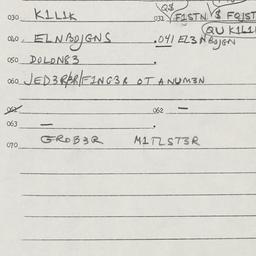 Q$
030 K1L1K 031 F1STN $ FQ1ST
QU K1L1
040 ELNBOJGNS .041 EL3NBOJGN
050 DOLONG3
060 JED3R/F1NG3R OT ANUM3N
062 062 —
063 —
070 GROB3R M1TLST3R